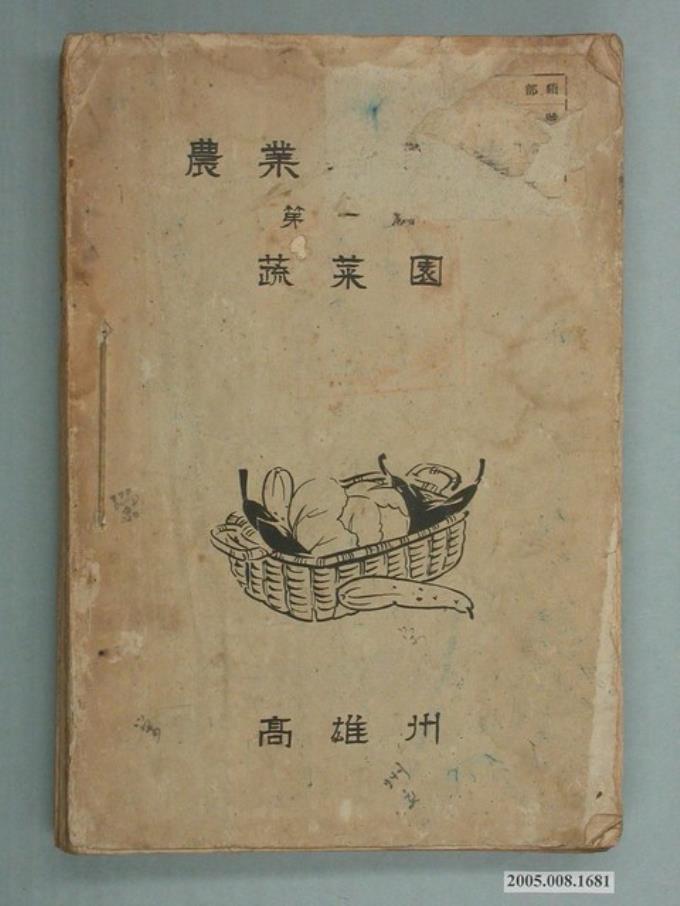 類部
號
農業
第一
蔬菜園
高雄州
2005.008.1681